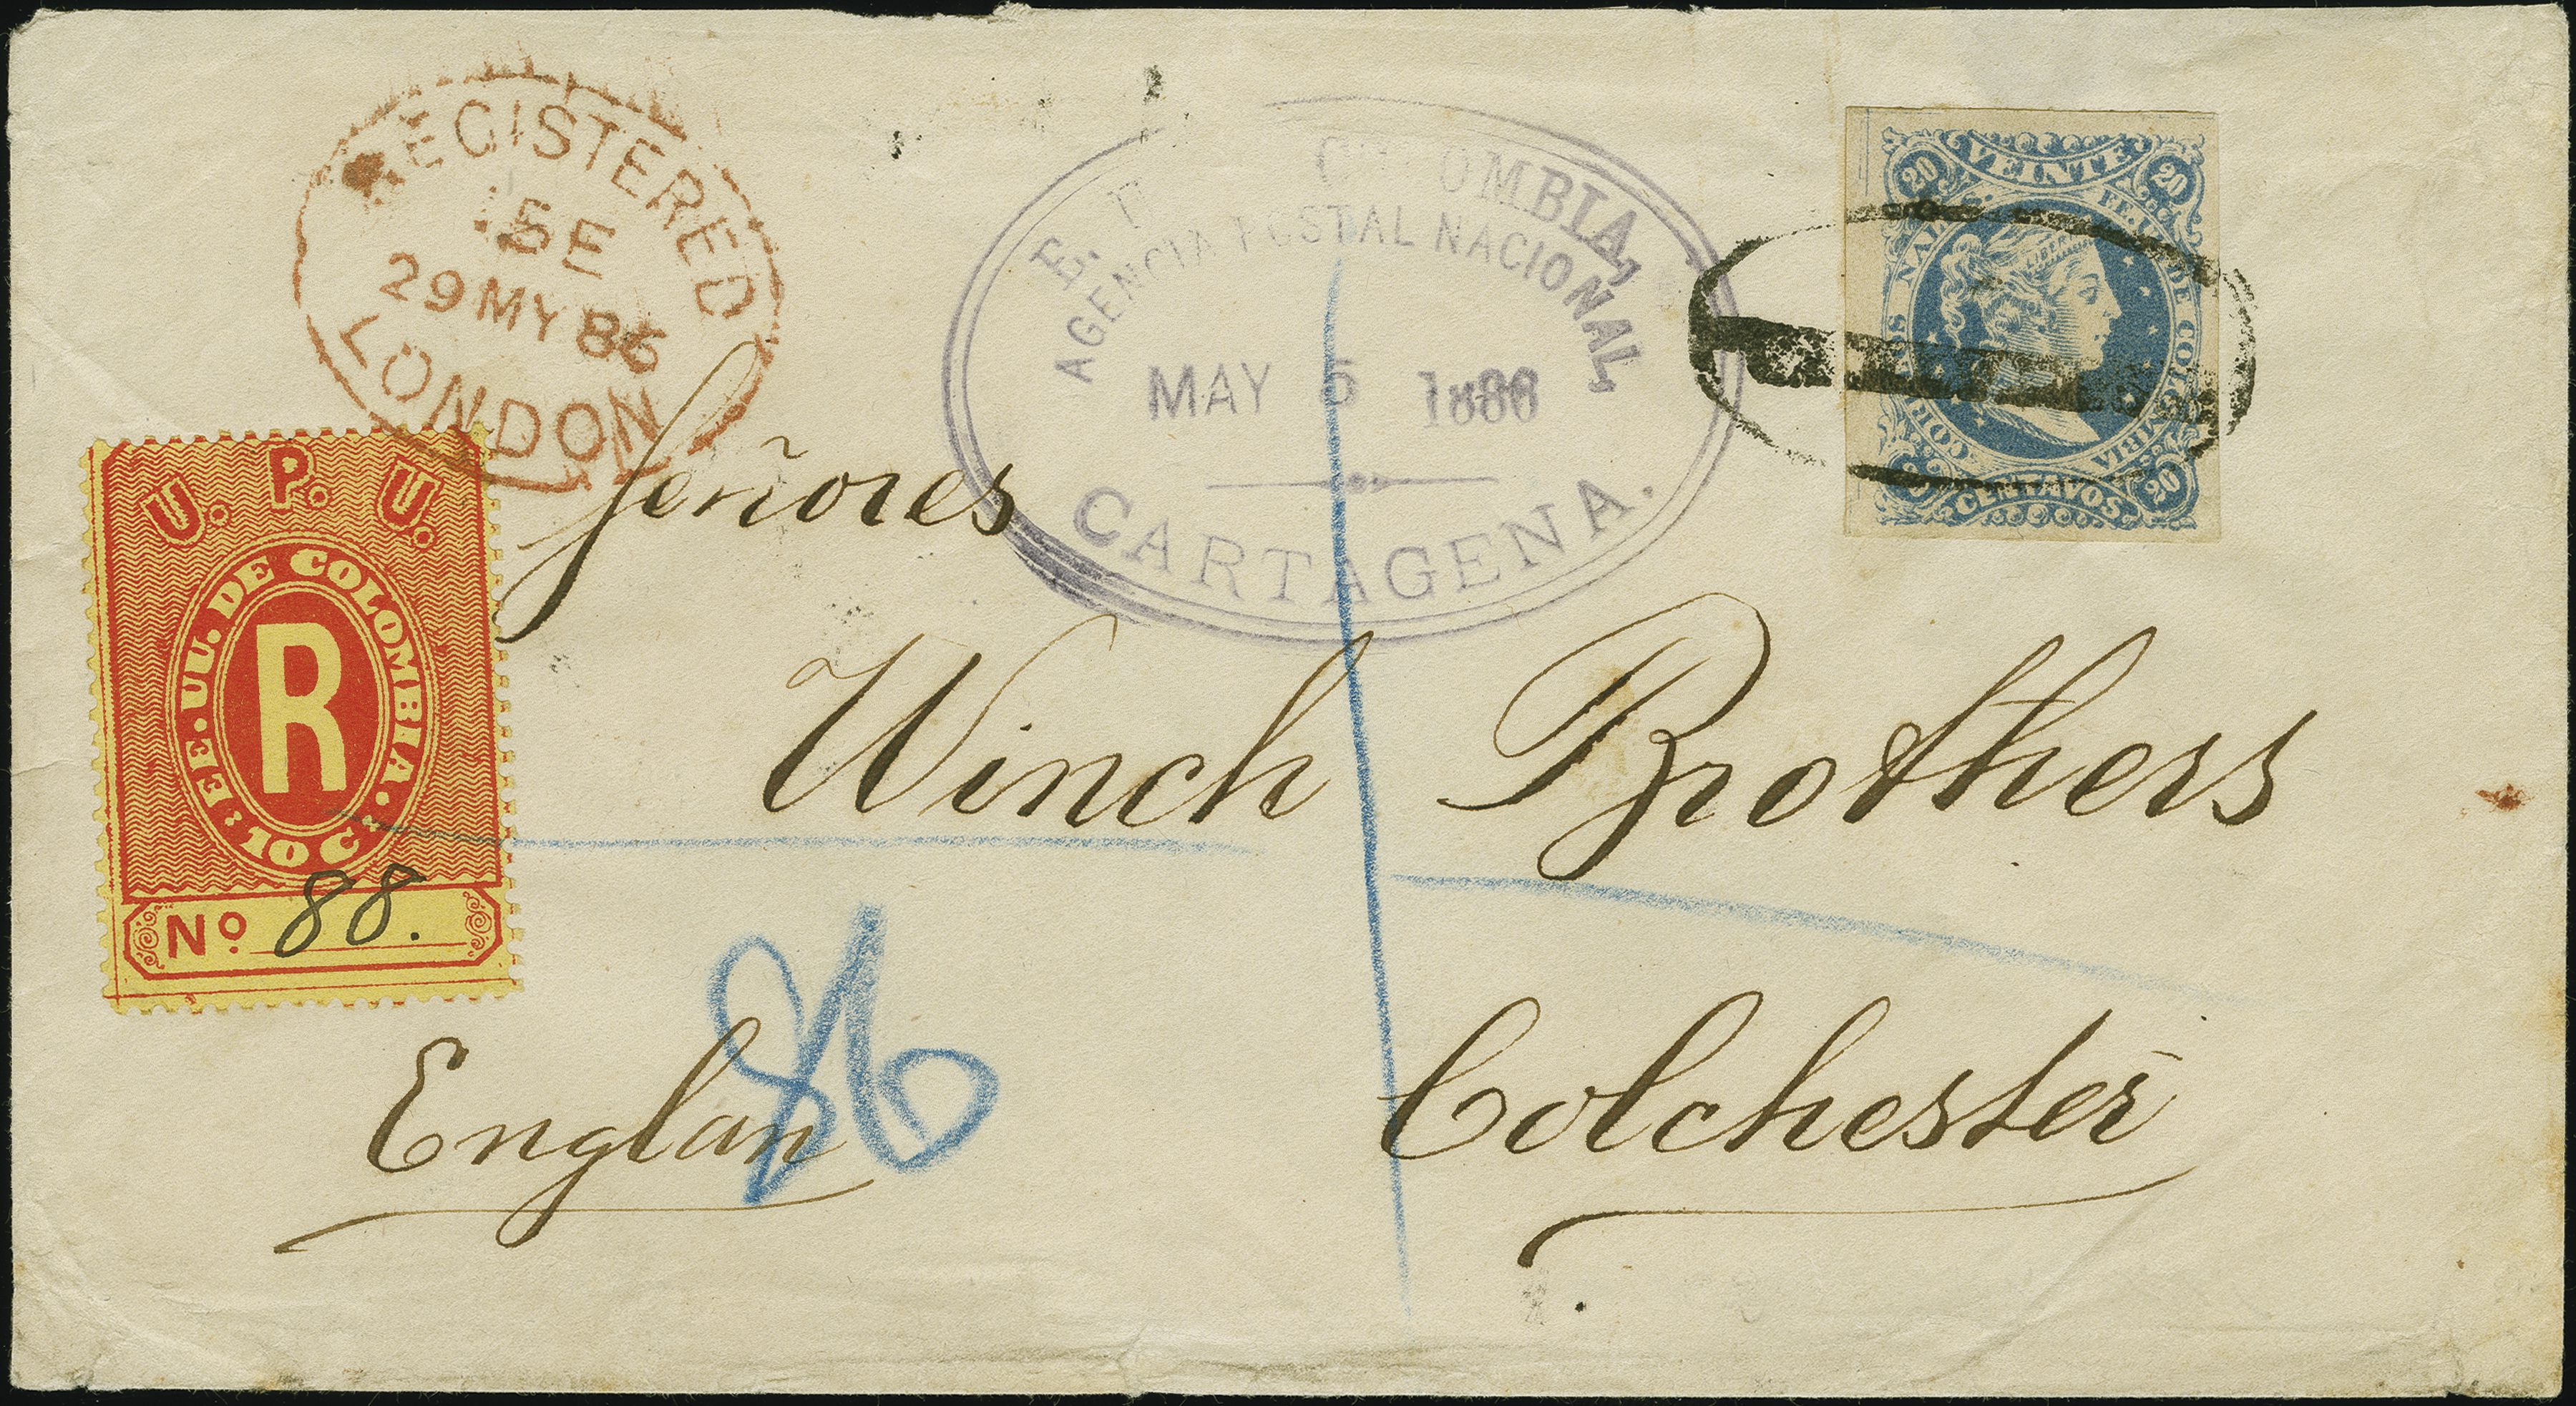 REGISTERED
5E
29 MY 86
LONDON
E. U. COLOMBIA,
AGENCIA POSTAL NACIONAL,
MAY 5 1886
CARTAGENA.
VEINTE
20 20
CORREOS NALES EE. UU. DE COLOMBIA
LIBERTAD
CENTAVOS
20
U. P. U.
EE. UU. DE COLOMBIA.
R
10 C
No 88.
Señores
Winch Brothers
Colchester
Englan